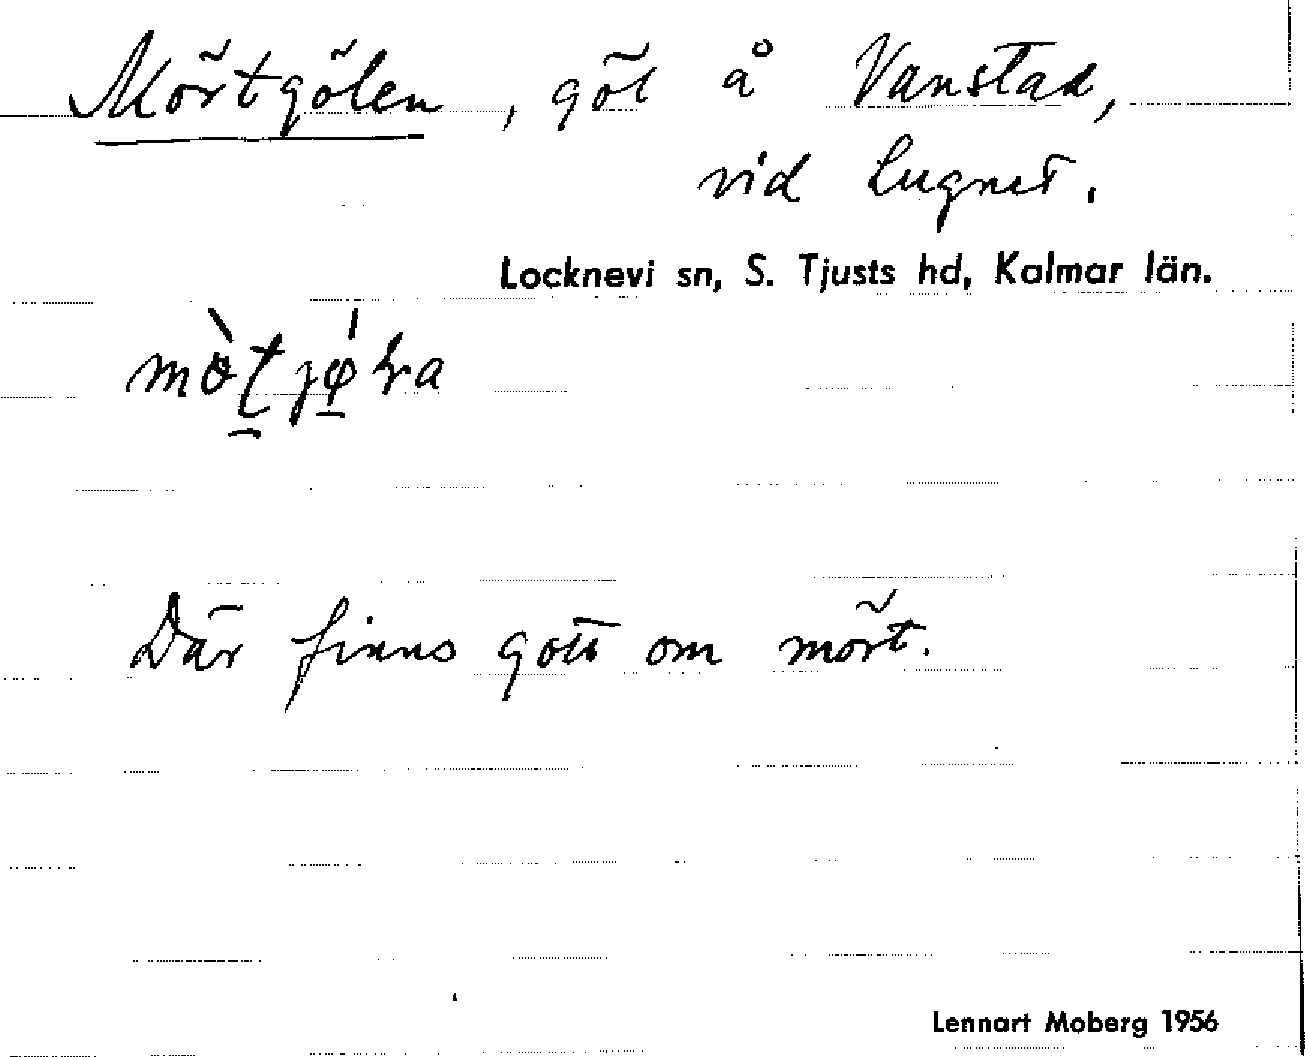 Mörtgölen, göl å Vanstad,
vid Lugnet.
Locknevi sn, S. Tjusts hd, Kalmar län.
Där finns gott om mört.
Lennart Moberg 1956